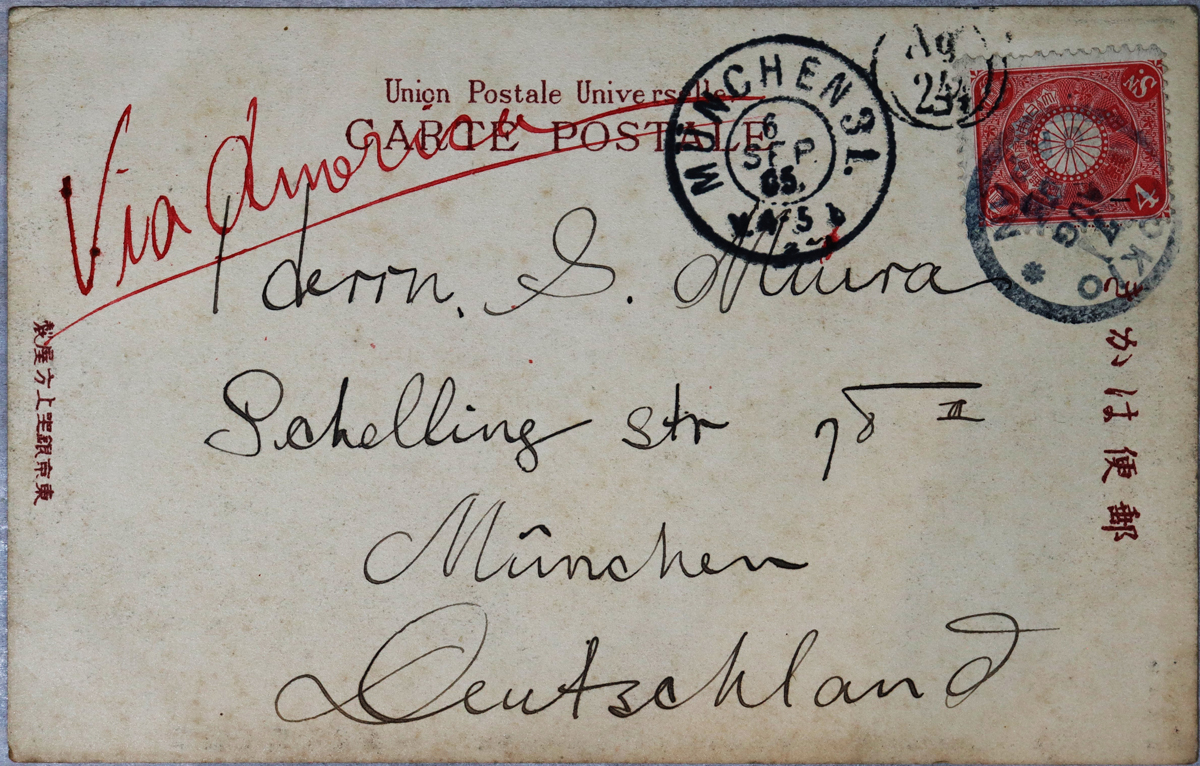 Union Postale Universelle.
CARTE POSTALE
Via America
MÜNCHEN 31.
6
SEP.
05.
Ag
24
4
Sn.
TOKIO
JAPAN
AUG
Herrn. S. Miura
Schelling str 78 II
München
Deutschland
郵便はかき
東京銀座上方屋製